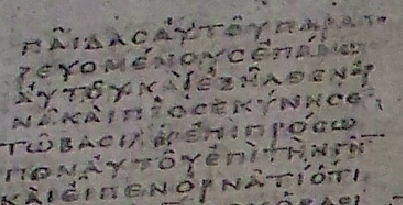 ΠΑΙΔΑϹΑΥΤΟΥΠΑΡΑΠΟ
ΡΕΥΟΜΕΝΟΥϹΕΠΑΝΩ
ΑΥΤΟΥΚΑΙΕΞΗΛΘΕΝΟΡ
ΝΑΚΑΙΠΡΟϹΕΚΥΝΗϹΕ
ΤΩΒΑϹΙΛΕΙΕΠΙΠΡΟϹΩ
ΠΟΝΑΥΤΟΥΕΠΙΤΗΝΓΗ
ΚΑΙΕΙΠΕΝΟΡΝΑΤΙΟΤΙ